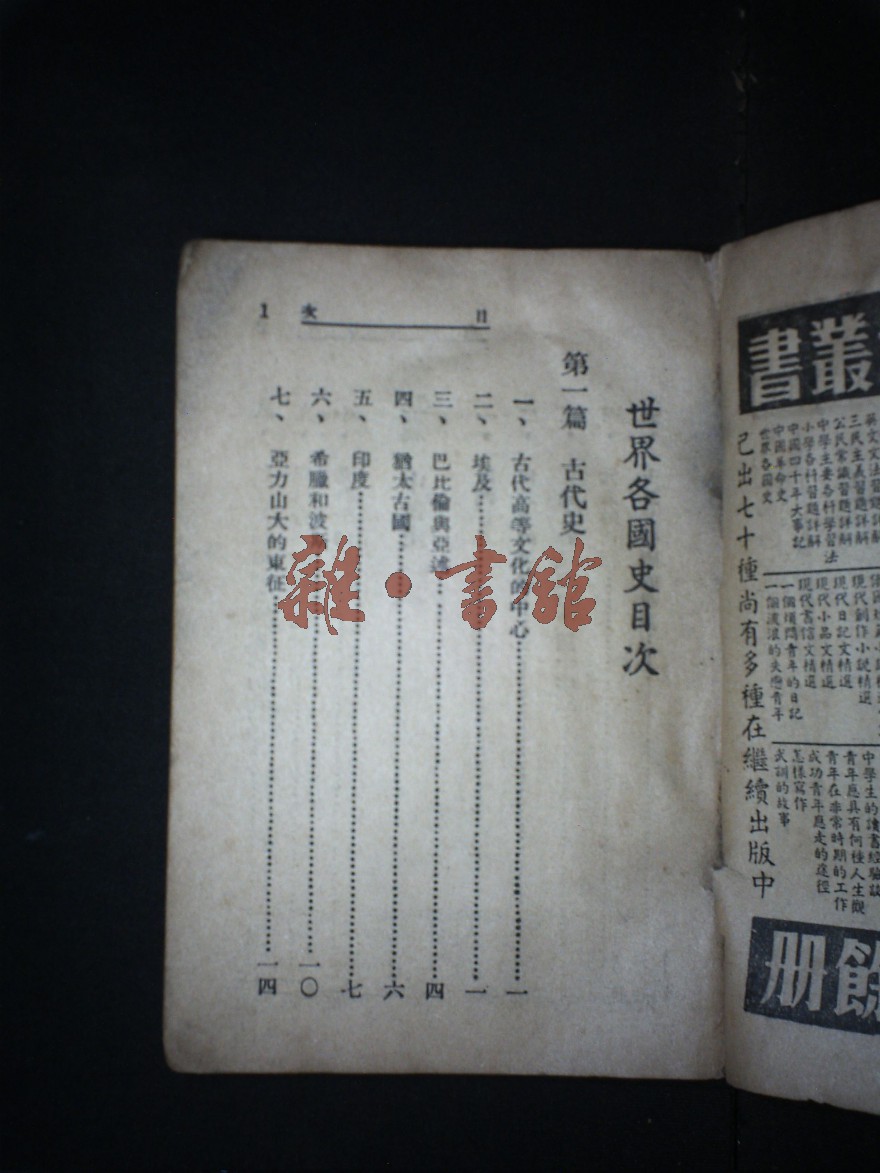 叢書
英文文法習題詳解
三民主義習題詳解
公民常識習題詳解
中學主要各科學習法
小學各科習題詳解
中國四十年大事記
中國革命史
世界各國史
現代創作小說精選
現代日記文精選
現代小品文精選
現代書信文精選
一個煩悶青年的日記
一個流浪的失戀青年
中學生的讀書經驗談
青年應具有何種人生觀
青年在非常時期的工作
成功青年應走的途徑
怎樣寫作
武訓的故事
已出七十種尚有多種在繼續出版中
餘册
世界各國史目次
第一篇 古代史
一、古代高等文化的中心………一
二、埃及………一
三、巴比倫與亞述………四
四、猶太古國………六
五、印度………七
六、希臘和波斯………一〇
七、亞力山大的東征………一四
目次
1
雜·書館